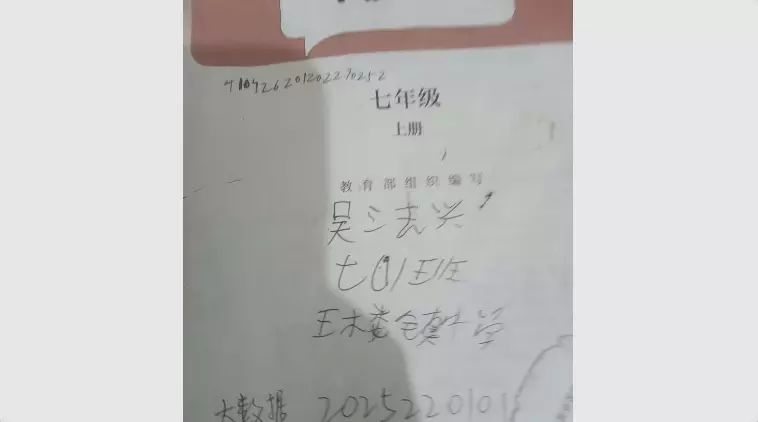 410426201202270252
七年级
上册
教育部组织编写
吴三志兴
七01班
王木娄屯镇中学
大数据 2025220101